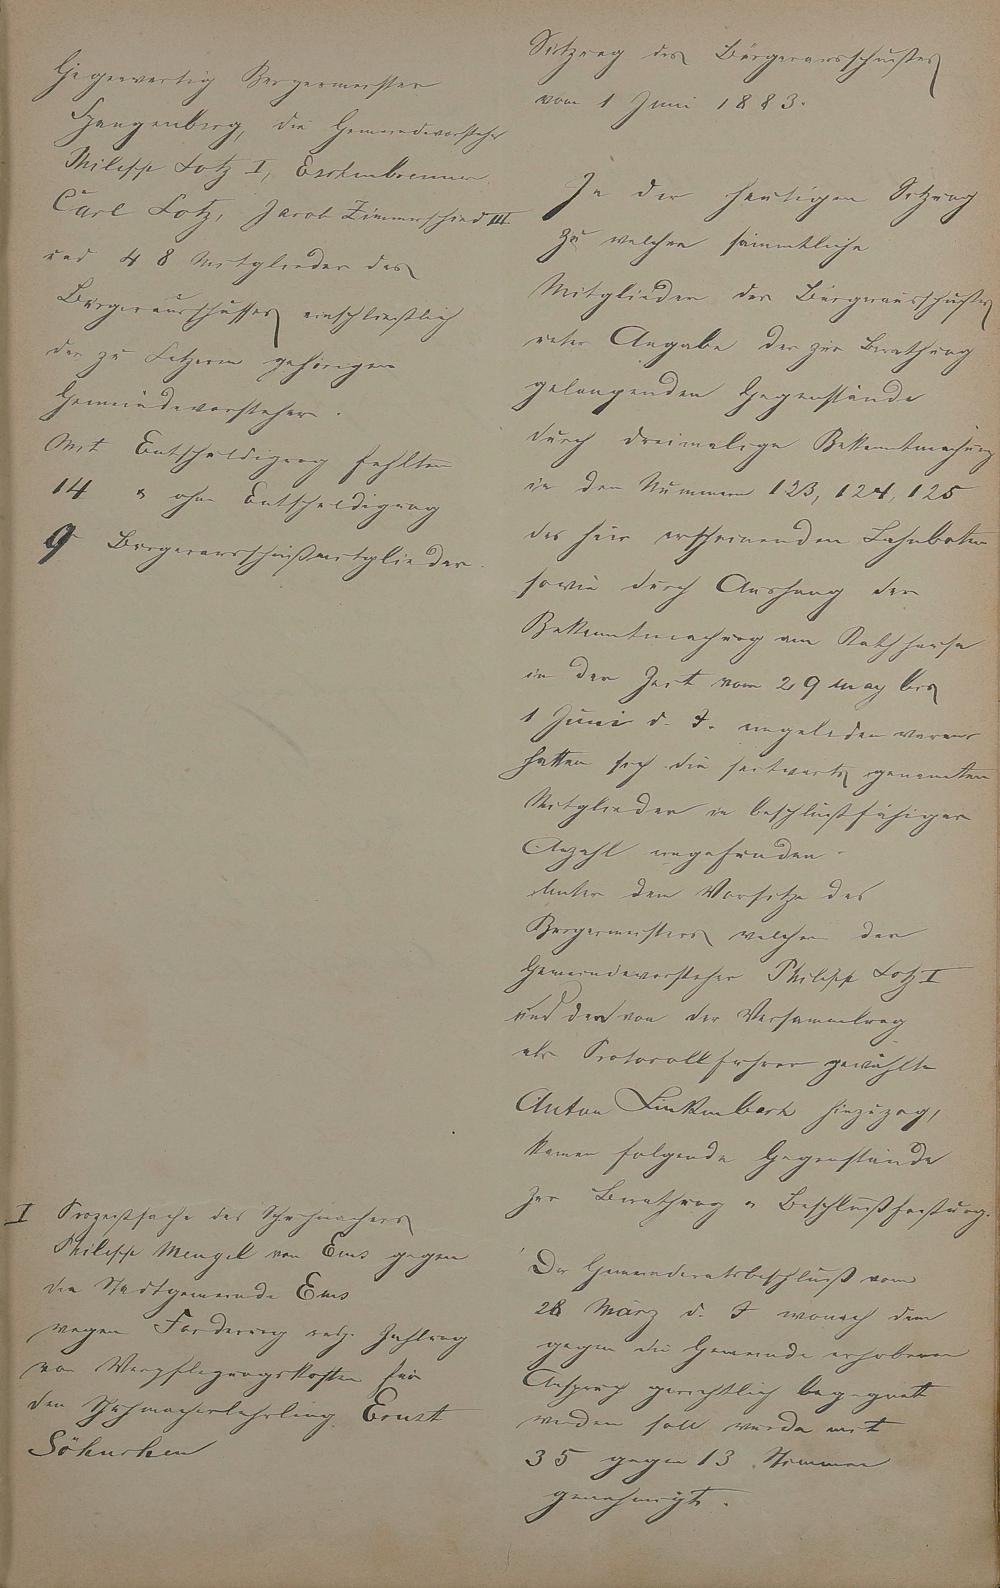 Gegenwärtig Bürgermeister
Spangenberg, die Gemeindevorsteher
Philipp Lotz I, Eschenbrenner
Carl Lotz, Jacob Zimmerschied III
und 48 Mitglieder des
Bürgerausschusses einschließlich
der zu Letzerem gehörigen
Gemeindevorsteher.
Mit Entschuldigung fehlten
14 u ohne Entschuldigung
9 Bürgerausschußmitglieder.
I Prozeßsache des Schuhmachers
Philipp Mengel von Ems gegen
die Stadtgemeinde Ems
wegen Forderung resp. Zahlung
von Verpflegungskosten für
den Schuhmacherlehrling Ernst
Söhnchen
Sitzung des Bürgerausschußes
vom 1 Juni 1883.
In der heutigen Sitzung
zu welcher sämmtliche
Mitglieder des Bürgerausschußes
unter Angabe der zur Berathung
gelangenden Gegenstände
durch dreimalige Bekanntmachung
in den Nummern 123, 124, 125
des hier erscheinenden Lahnboten
sowie durch Aushang der
Bekanntmachung am Rathhause
in der Zeit vom 29 May bis
1 Juni d. J. eingeladen waren
hatten sich die seitwärts genannten
Mitglieder in beschlußfähiger
Anzahl eingefunden.
Unter dem Vorsitze des
Bürgermeisters welcher den
Gemeindevorsteher Philipp Lotz I
und den von der Versammlung
als Protocollführer gewählten
Anton Linkenbach hinzuzog,
kamen folgende Gegenstände
zur Berathung u Beschlußfassung.
Der Gemeinderatsbeschluß vom
28 März d. J wonach dem
gegen die Gemeinde erhobenen
Anspruch gerichtlich begegnet
werden soll wurde mit
35 gegen 13 Stimmen
genehmigt.